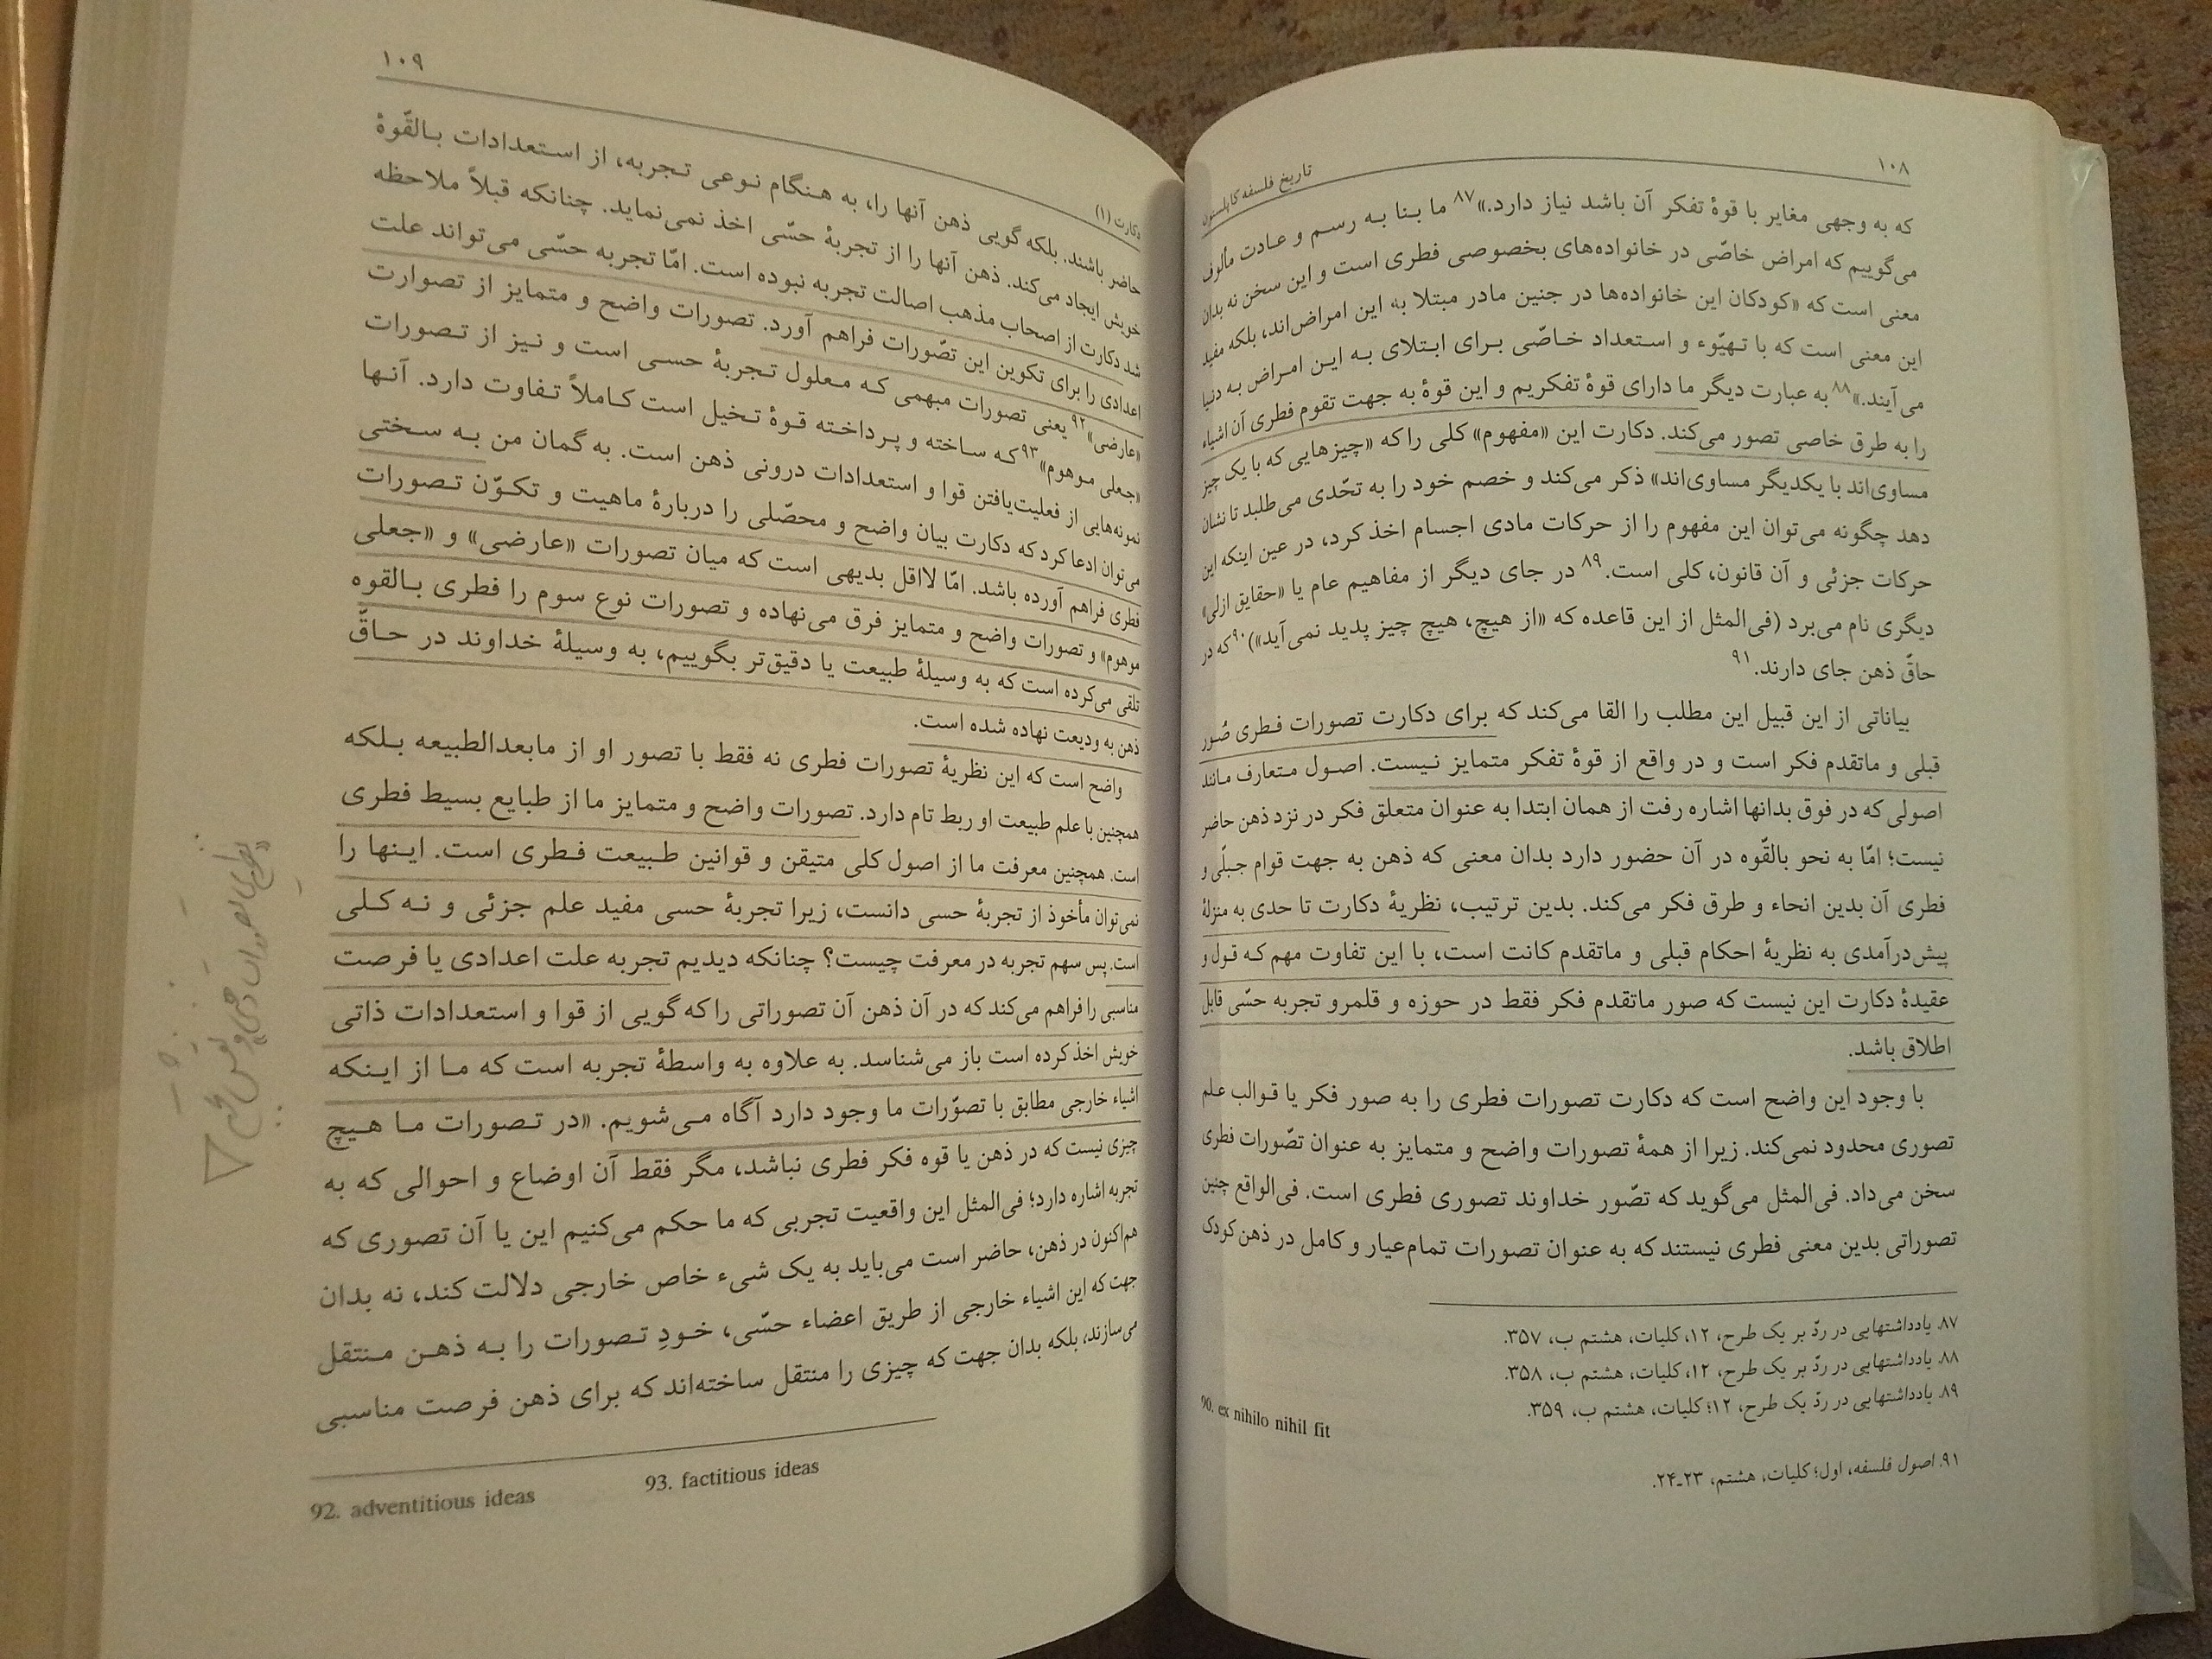 ۱۰۸
تاریخ فلسفه کاپلستون
که به وجهی مغایر با قوهٔ تفکر آن باشد نیاز دارد.»۸۷ ما بنا به رسم و عادت مألوف
می‌گوییم که امراض خاصّی در خانواده‌های بخصوصی فطری است و این سخن نه بدان
معنی است که «کودکان این خانواده‌ها در جنین مادر مبتلا به این امراض‌اند، بلکه مفید
این معنی است که با تهیّوء و استعداد خاصّی برای ابتلای به این امراض به دنیا
می‌آیند.»۸۸ به عبارت دیگر ما دارای قوهٔ تفکریم و این قوهٔ به جهت تقوم فطری آن اشیاء
را به طرق خاصی تصور می‌کند. دکارت این «مفهوم» کلی را که «چیزهایی که با یک چیز
مساوی‌اند با یکدیگر مساوی‌اند» ذکر می‌کند و خصم خود را به تحّدی می‌طلبد تا نشان
دهد چگونه می‌توان این مفهوم را از حرکات مادی اجسام اخذ کرد، در عین اینکه این
حرکات جزئی و آن قانون، کلی است.۸۹ در جای دیگر از مفاهیم عام یا «حقایق ازلی»
دیگری نام می‌برد (فی‌المثل از این قاعده که «از هیچ، هیچ چیز پدید نمی‌آید»)۹۰ که در
حاقّ ذهن جای دارند.۹۱
بیاناتی از این قبیل این مطلب را القا می‌کند که برای دکارت تصورات فطری صُور
قبلی و ماتقدم فکر است و در واقع از قوهٔ تفکر متمایز نیست. اصول متعارف مانند
اصولی که در فوق بدانها اشاره رفت از همان ابتدا به عنوان متعلق فکر در نزد ذهن حاضر
نیست؛ امّا به نحو بالقّوه در آن حضور دارد بدان معنی که ذهن به جهت قوام جبلّی و
فطری آن بدین انحاء و طرق فکر می‌کند. بدین ترتیب، نظریهٔ دکارت تا حدی به منزلهٔ
پیش‌درآمدی به نظریهٔ احکام قبلی و ماتقدم کانت است، با این تفاوت مهم که قول و
عقیدهٔ دکارت این نیست که صور ماتقدم فکر فقط در حوزه و قلمرو تجربه حسّی قابل
اطلاق باشد.
با وجود این واضح است که دکارت تصورات فطری را به صور فکر یا قوالب علم
تصوری محدود نمی‌کند. زیرا از همهٔ تصورات واضح و متمایز به عنوان تصّورات فطری
سخن می‌داد. فی‌المثل می‌گوید که تصّور خداوند تصوری فطری است. فی‌الواقع چنین
تصوراتی بدین معنی فطری نیستند که به عنوان تصورات تمام‌عیار و کامل در ذهن کودک
۸۷. یادداشتهایی در ردّ بر یک طرح، ۱۲، کلیات، هشتم ب، ۳۵۷.
۸۸. یادداشتهایی در ردّ بر یک طرح، ۱۲، کلیات، هشتم ب، ۳۵۸.
۸۹. یادداشتهایی در ردّ یک طرح، ۱۲؛ کلیات، هشتم ب، ۳۵۹.
90. ex nihilo nihil fit
۹۱. اصول فلسفه، اول؛ کلیات، هشتم، ۲۳ـ۲۴.
دکارت (۱)
۱۰۹
حاضر باشند. بلکه گویی ذهن آنها را، به هنگام نوعی تجربه، از استعدادات بالقّوهٔ
خویش ایجاد می‌کند. ذهن آنها را از تجربهٔ حسّی اخذ نمی‌نماید. چنانکه قبلاً ملاحظه
شد دکارت از اصحاب مذهب اصالت تجربه نبوده است. امّا تجربه حسّی می‌تواند علت
اعدادی را برای تکوین این تصّورات فراهم آورد. تصورات واضح و متمایز از تصوارت
«عارضی»۹۲ یعنی تصورات مبهمی که معلول تجربهٔ حسی است و نیز از تصورات
«جعلی موهوم»۹۳ که ساخته و پرداخته قوهٔ تخیل است کاملاً تفاوت دارد. آنها
نمونه‌هایی از فعلیت‌یافتن قوا و استعدادات درونی ذهن است. به گمان من به سختی
می‌توان ادعا کرد که دکارت بیان واضح و محصّلی را دربارهٔ ماهیت و تکوّن تصورات
فطری فراهم آورده باشد. امّا لااقل بدیهی است که میان تصورات «عارضی» و «جعلی
موهوم» و تصورات واضح و متمایز فرق می‌نهاده و تصورات نوع سوم را فطری بالقوه
تلقی می‌کرده است که به وسیلهٔ طبیعت یا دقیق‌تر بگوییم، به وسیلهٔ خداوند در حاقّ
ذهن به ودیعت نهاده شده است.
واضح است که این نظریهٔ تصورات فطری نه فقط با تصور او از مابعدالطبیعه بلکه
همچنین با علم طبیعت او ربط تام دارد. تصورات واضح و متمایز ما از طبایع بسیط فطری
است. همچنین معرفت ما از اصول کلی متیقن و قوانین طبیعت فطری است. اینها را
نمی‌توان مأخوذ از تجربهٔ حسی دانست، زیرا تجربهٔ حسی مفید علم جزئی و نه کلی
است. پس سهم تجربه در معرفت چیست؟ چنانکه دیدیم تجربه علت اعدادی یا فرصت
مناسبی را فراهم می‌کند که در آن ذهن آن تصوراتی را که گویی از قوا و استعدادات ذاتی
خویش اخذ کرده است باز می‌شناسد. به علاوه به واسطهٔ تجربه است که ما از اینکه
اشیاء خارجی مطابق با تصوّرات ما وجود دارد آگاه می‌شویم. «در تصورات ما هیچ
چیزی نیست که در ذهن یا قوه فکر فطری نباشد، مگر فقط آن اوضاع و احوالی که به
تجربه اشاره دارد؛ فی‌المثل این واقعیت تجربی که ما حکم می‌کنیم این یا آن تصوری که
هم‌اکنون در ذهن، حاضر است می‌باید به یک شیء خاص خارجی دلالت کند، نه بدان
جهت که این اشیاء خارجی از طریق اعضاء حسّی، خودِ تصورات را به ذهن منتقل
می‌سازند، بلکه بدان جهت که چیزی را منتقل ساخته‌اند که برای ذهن فرصت مناسبی
92. adventitious ideas
93. factitious ideas